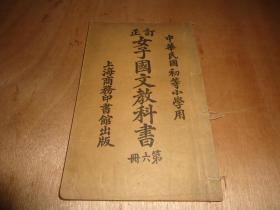 中華民國初等小學用
訂正女子國文教科書
第六冊
上海商務印書館出版